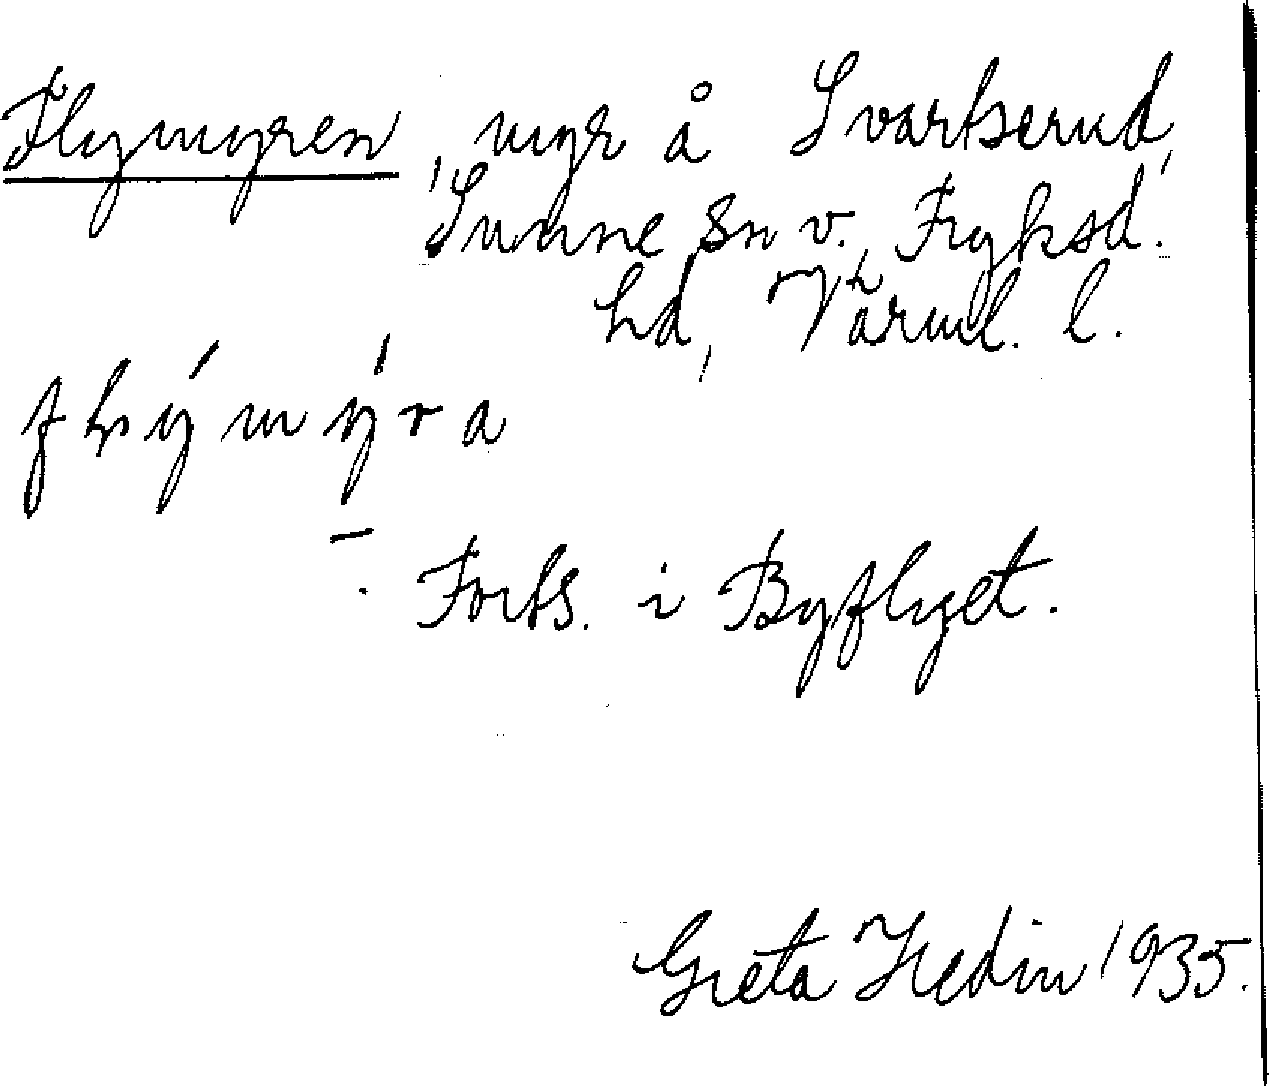 Flymyren, myr å Svartserud,
Sunne sn v., Fryksd.
hd, Värml. l.
flýmýra
– . Forts. i Byflyet.
Greta Hedin 1935.